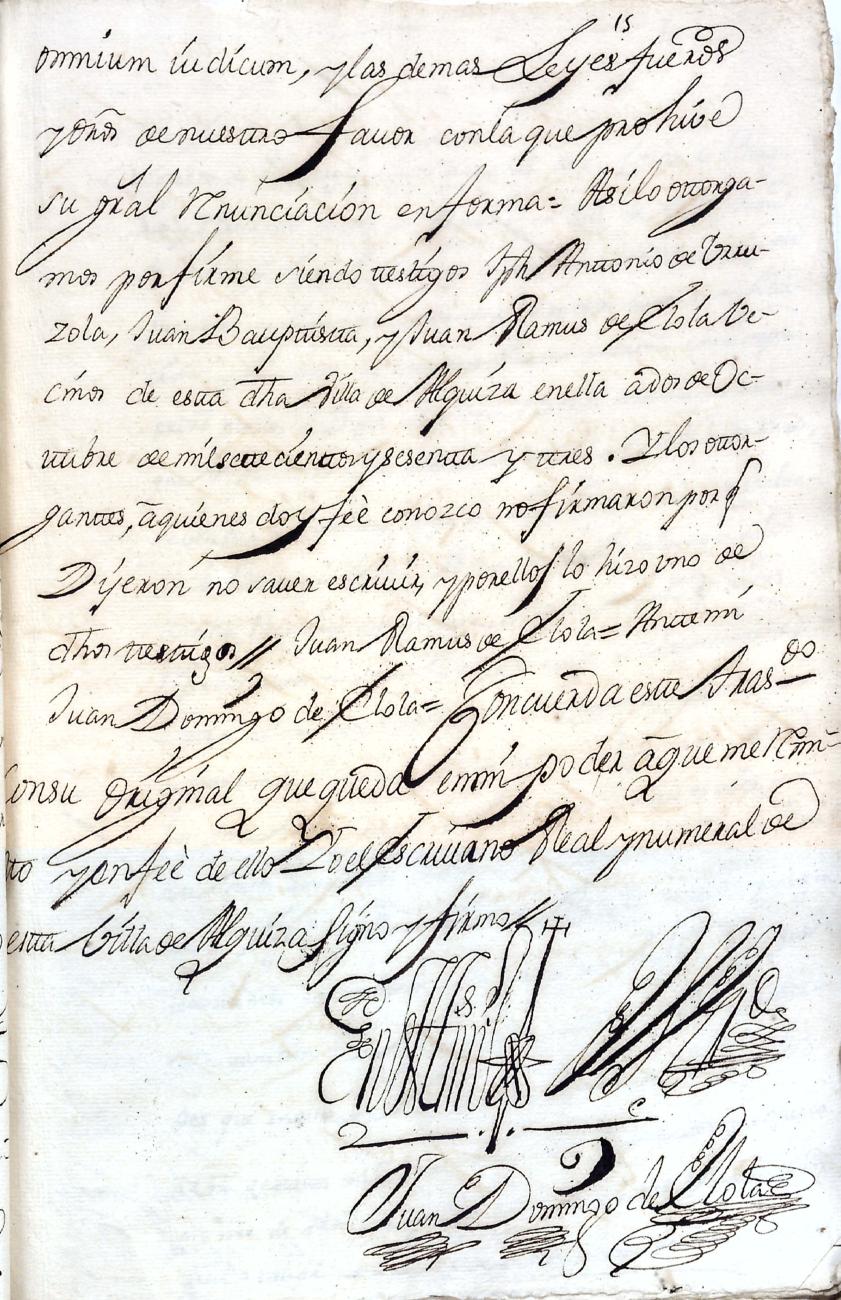 15
omnium iudicum, y las demas Leyes fueros
y dros̃ de nuestro favor con la que prohive
su grãl Rnunciación en forma = Asilo ottorga-
mos por firme siendo ttesttigos Jph Anttonio de Urru-
zola, Juan Bauptistta, y Juan Ramus de Elola Ve-
cinos de estta dha Villa de Alquiza en ella a dos de Oc-
ttubre de mil settecienttos y sesentta y ttres. Y los ottor-
ganttes, a quienes doy feè conozco no firmaron por q̃
Dijeron no saver escrivir, y por ellos lo hizo uno de
dhos ttesttigos // Juan Ramus de Elola = Antte mi
Juan Domingo de Elola = Concuerda estte tras.do
Con su Original que queda en mi poder a que me Rmi-
tto y en feè de ello Yo el Escrivano Real y numeral de
estta Villa de Alquiza Signo y firmo //
En ttesttim.o de Verd
Juan Domingo de Elola